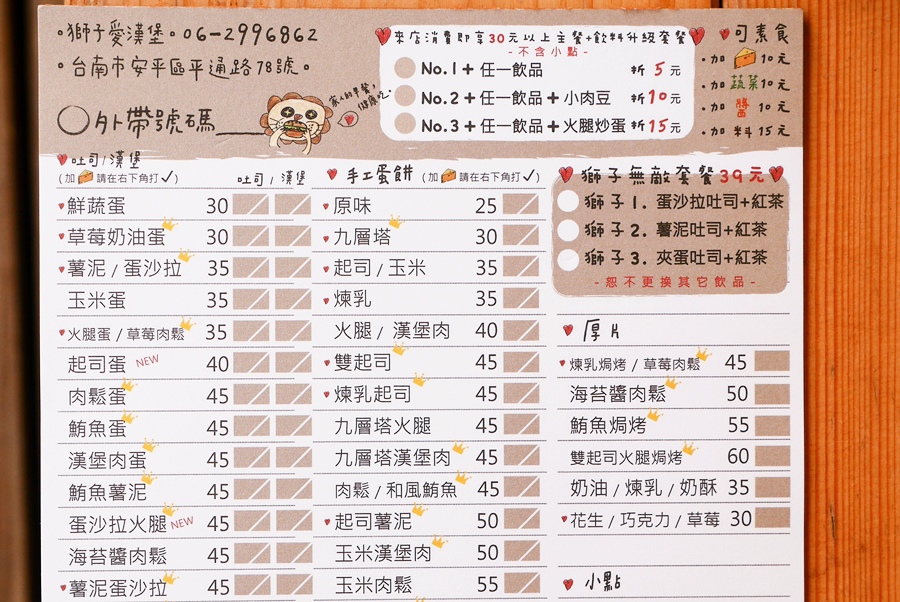 獅子愛漢堡 06-2996862
台南市安平區平通路78號
外帶號碼
來店消費即享30元以上主餐+飲料升級套餐
-不含小點-
No.1+任一飲品 折5元
No.2+任一飲品+小肉豆 折10元
No.3+任一飲品+火腿炒蛋 折15元
可素食
加 10元
加蔬菜10元
加 10元
加料15元
吐司/漢堡
(加 請在右下角打✓) 吐司/漢堡
鮮蔬蛋 30
草莓奶油蛋 30
薯泥/蛋沙拉 35
玉米蛋 35
火腿蛋/草莓肉鬆 35
起司蛋 NEW 40
肉鬆蛋 45
鮪魚蛋 45
漢堡肉蛋 45
鮪魚薯泥 45
蛋沙拉火腿 NEW 45
海苔醬肉鬆 45
薯泥蛋沙拉 45
手工蛋餅 (加 請在右下角打✓)
原味 25
九層塔 30
起司/玉米 35
煉乳 35
火腿/漢堡肉 40
雙起司 45
煉乳起司 45
九層塔火腿 45
九層塔漢堡肉 45
肉鬆/和風鮪魚 45
起司薯泥 50
玉米漢堡肉 50
玉米肉鬆 55
獅子無敵套餐39元
獅子1. 蛋沙拉吐司+紅茶
獅子2. 薯泥吐司+紅茶
獅子3. 夾蛋吐司+紅茶
-恕不更換其它飲品-
厚片
煉乳焗烤/草莓肉鬆 45
海苔醬肉鬆 50
鮪魚焗烤 55
雙起司火腿焗烤 60
奶油/煉乳/奶酥 35
花生/巧克力/草莓 30
小點